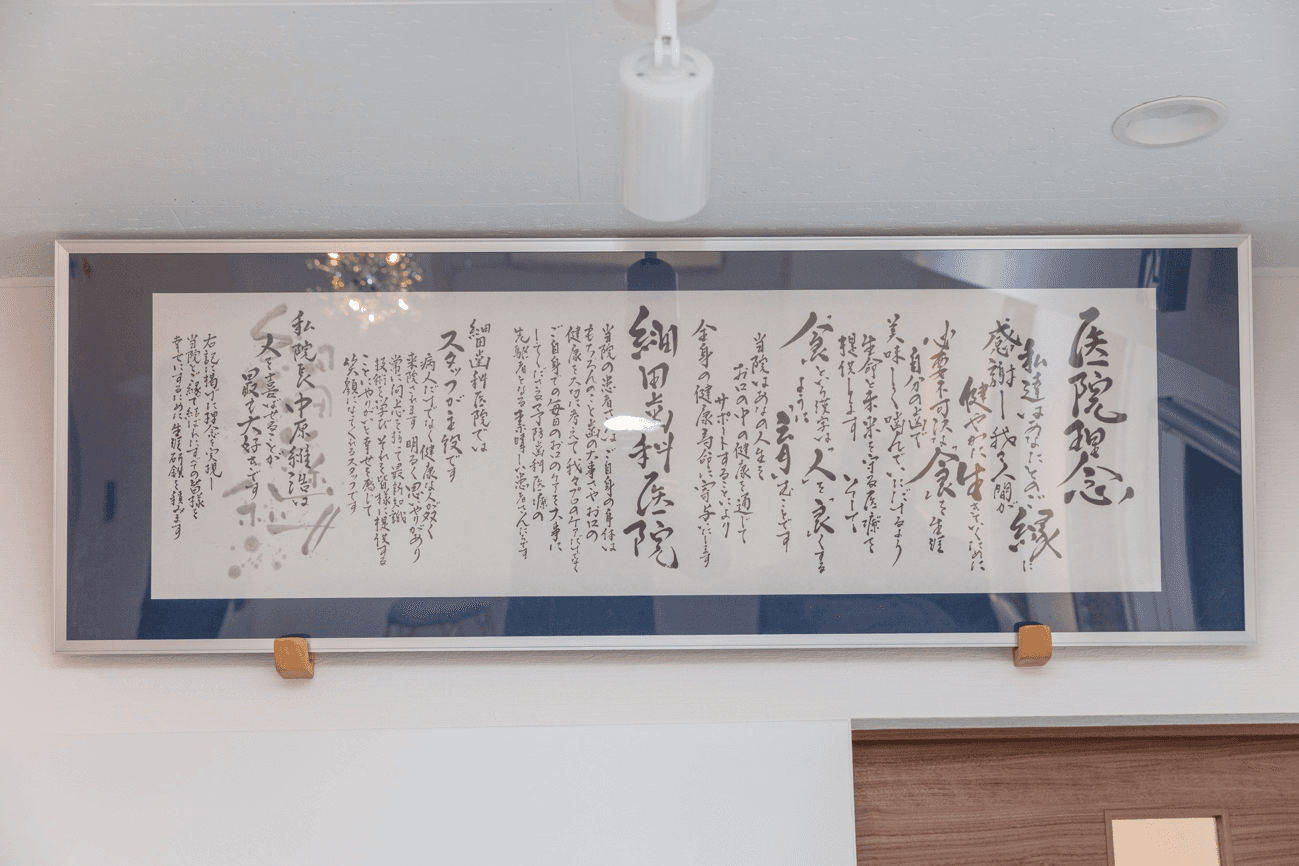 医院理念
私達はあなたとのご縁に
感謝し我々人間が
健やかに生きていくために
必要不可欠な食を生涯
自分の歯で
美味しく噛んでいただけるよう
生命と未来を守る医療を
提供します そして
食という漢字は人を良くする
ように 育むことです
当院はあなたの人生を
お口の中の健康を通じて
サポートすることにより
全身の健康寿命に寄与致します
細田歯科医院
当院の患者さまは ご自身の身体は
もちろんのこと歯の大事さやお口の
健康を大切に考えて我々プロのケアだけでなく
ご自身での毎日のお口のケアを大事に
してくださる予防歯科医療の
先駆者となる素晴らしい患者さんたちです
細田歯科医院では
スタッフが主役です
病人だけでなく健康な人が数多く
来院されます 明るく思いやりがあり
常に向上心を持って最新の知識
技術を学び それを皆様に提供する
ことにやりがいと幸せを感じて
笑顔になっているスタッフです
私 院長 中原維浩は
人を喜ばせることが
最も大好きです
右記に掲げた理念を実現し
当院とご縁で結ばれたすべての皆様を
幸せにするために生涯研鑽を積みます